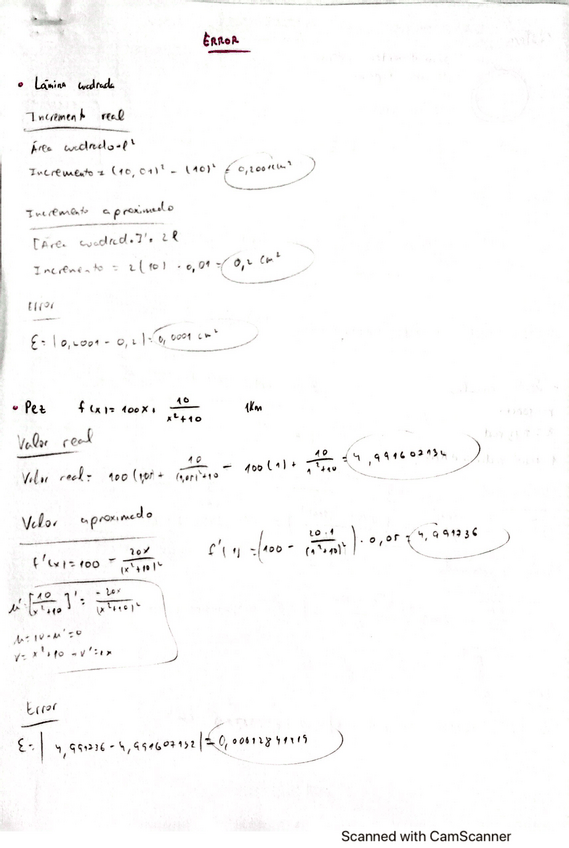 ERROR
• Lámina cuadrada
Incremento real
Área cuadrado = l²
Incremento = (10,01)² - (10)² = 0,2001 cm²
Incremento aproximado
[Área cuadrado]' = 2l
Incremento = 2(10) · 0,01 = 0,2 cm²
Error
ε = |0,2001 - 0,2| = 0,0001 cm²
• Pez f(x) = 100x + 10/(x²+10) 1Km
Valor real
Valor real = 100(1,05) + 10/((1,05)²+10) - 100(1) + 10/(1²+10) = 4,991607132
Valor aproximado
f'(x) = 100 - 20x/(x²+10)² f'(1) = (100 - 20·1/(1²+10)²) · 0,05 = 4,991736
[10/(x²+10)]' = -20x/(x²+10)²
u = 10 → u' = 0
v = x²+10 → v' = 2x
Error
ε = | 4,991736 - 4,991607132 | =
Scanned with CamScanner